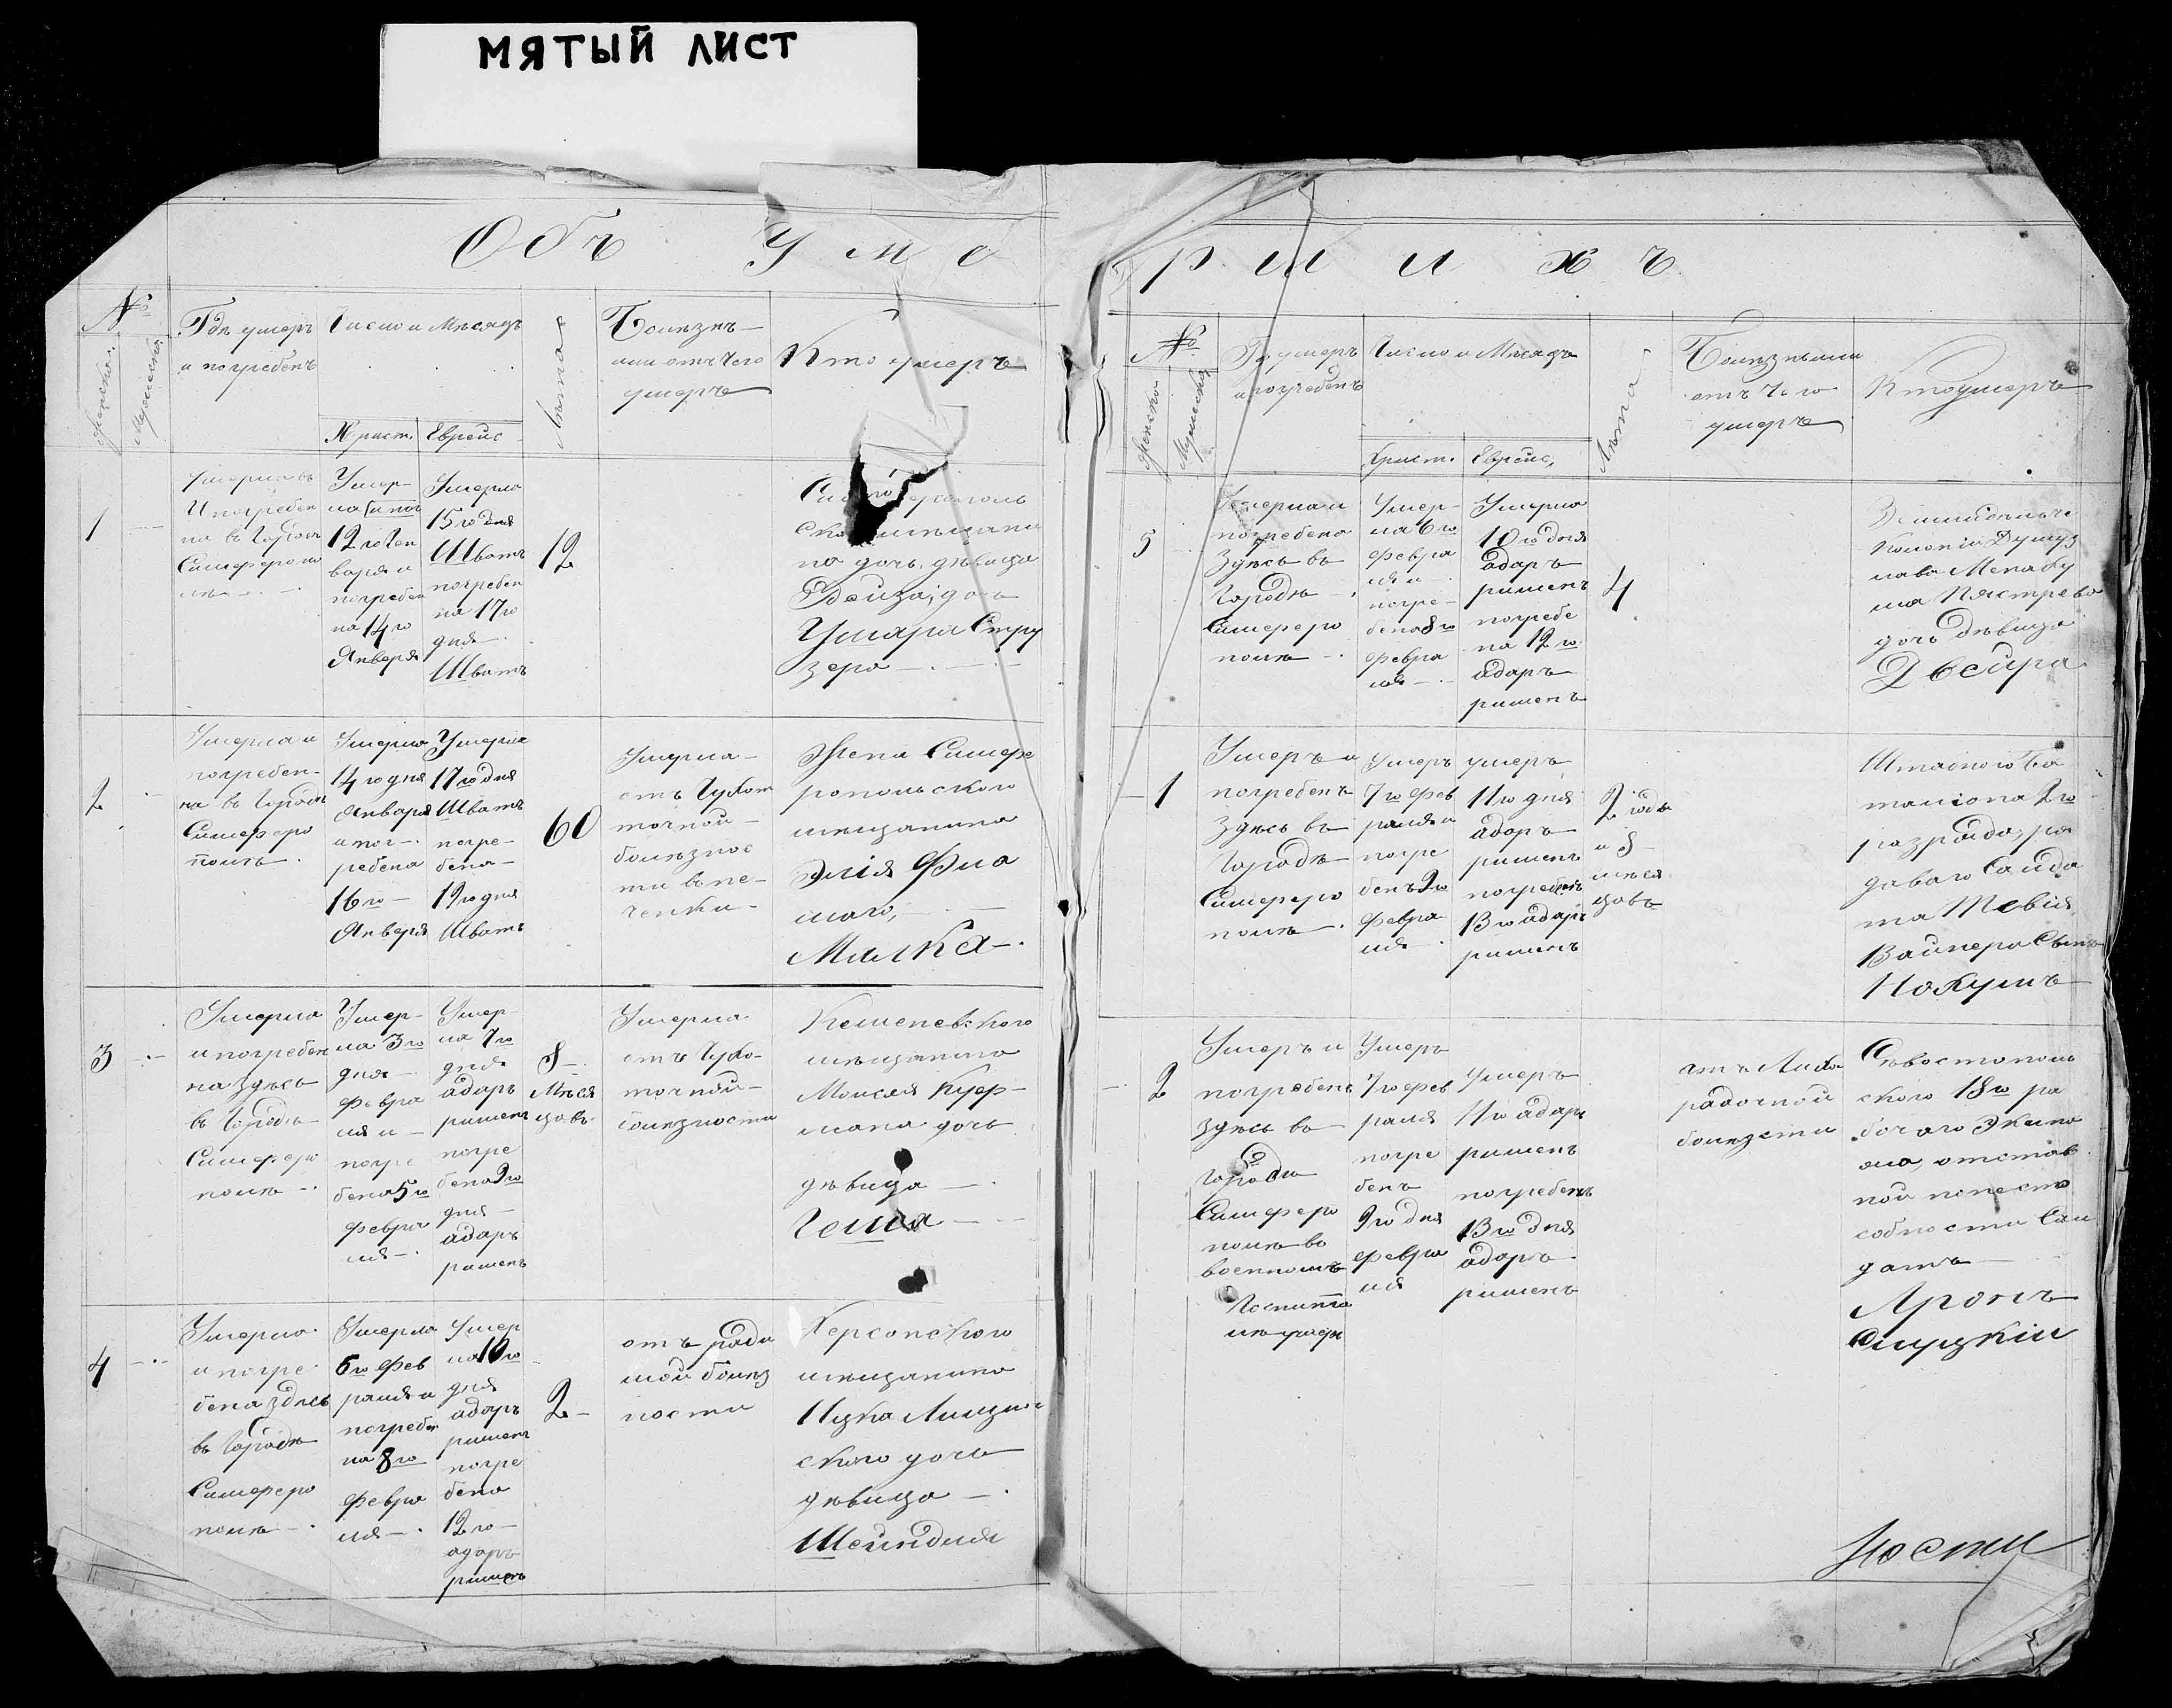 МЯТЫЙ ЛИСТ
Объ Умо
№
женска.
Мужеска.
Гдѣ умеръ
и погребенъ
Число и Мѣсяцъ
Христ.
Еврейс
Лѣта
Болѣзнь
или отъ чего
умеръ
Кто умеръ
1
Умерла въ
И погребен
на въ Городѣ
Симферопо
лѣ
Умер-
ла
12го Ген
варя и
погребен
на 14го
Января
Умерла
15го дня
Шватъ
погребен
на 17го
дня
Шватъ
12
на дочь, дѣвица
Рейза, дочь
Умара Стру
зера
2
Умерла и
погребен-
на въ Городѣ
Симферо
полѣ
Умерла
14го дня
Января
и пог-
ребена
16го
Января
Умерла
17го дня
Шватъ
погре-
бена
19го дня
Шватъ
60
Умерла
отъ Чухот
точной
болѣзнос
ти въ пе-
ченки
Жена Симфе
ропольского
мѣщанина
Элія Фиа
лаго,
Малка
3
Умерла
и погребен
на здѣсь
въ Городѣ
Симферо
полѣ
Умер-
ла 3го
дня
Февра
ля и
погре
бена 5го
Февра
ля
Умер-
ла 7го
дня
адаръ
ришенъ
погре
бена 9го
дня
адаръ
ришенъ
8
Мѣся
цовъ
Умерла
отъ Чухо-
точной
болѣзности
Кешеневского
мѣщанина
Моисея Куф-
мана дочь
дѣвица
4
Умерла
и погре
бена здѣсь
въ Городѣ
Симферо
полѣ
Умерла
6го Фев
раля и
погребе
на 8го
Февра
ля
Умер
ла 10го
дня
адаръ
ришенъ
погре
бена
12го
адаръ
ришенъ
2
отъ
болѣз
ности
Херсонского
мѣщанина
Ицка
ского дочь
дѣвица
Шейндля
ршихъ
№
женска
Мужеска
Гдѣ умеръ
и погребенъ
Число и Мѣсяцъ
Христ.
Еврейс.
Лѣта
Болѣзнь или
отъ чего
умеръ
Кто умеръ
5
Умерла и
погребена
здѣсь въ
Городѣ
Симферо
полѣ
Умер-
ла 6го
Февра
ля и
погре-
бена 8го
Февра
ля
Умерла
10го дня
адаръ
ришенъ
погребе
на 12го
адаръ
ришенъ
4
дочь дѣвица
Двейра
1
Умеръ и
погребенъ
здѣсь въ
Городѣ
Симферо
полѣ
Умеръ
7го Фев
раля и
погре
бенъ 9го
Февра
ля
умеръ
11го дня
адаръ
ришенъ
погребенъ
13го адаръ
ришенъ
2 года
и 8
мѣся
цовъ
Штатного Ба
талиона 2го
разряда, ря
даваго Салда
та Тевія
Вайнера Сынъ
Нохумъ
2
Умеръ и
погребенъ
здѣсь въ
Городѣ
Симферо
полѣ въ
военномъ
Госпита
лѣ
Умеръ
7го Фев
раля
погре
бенъ
9го дня
Февра
ля
Умеръ
11го адаръ
ришенъ
погребенъ
13го дня
адаръ
ришенъ
отъ Лихо
радочной
болѣзсти
Сѣвостополь
ского 18го ра
бочаго Экипа
жа, отстав
ной по неспо
собности Сол
датъ
Аронъ
Слуцкій